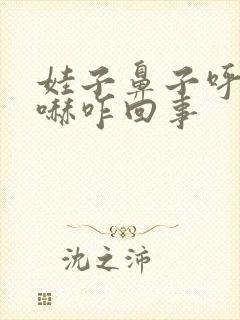 娃子鼻子呼
嚇咋回事
沈之沛